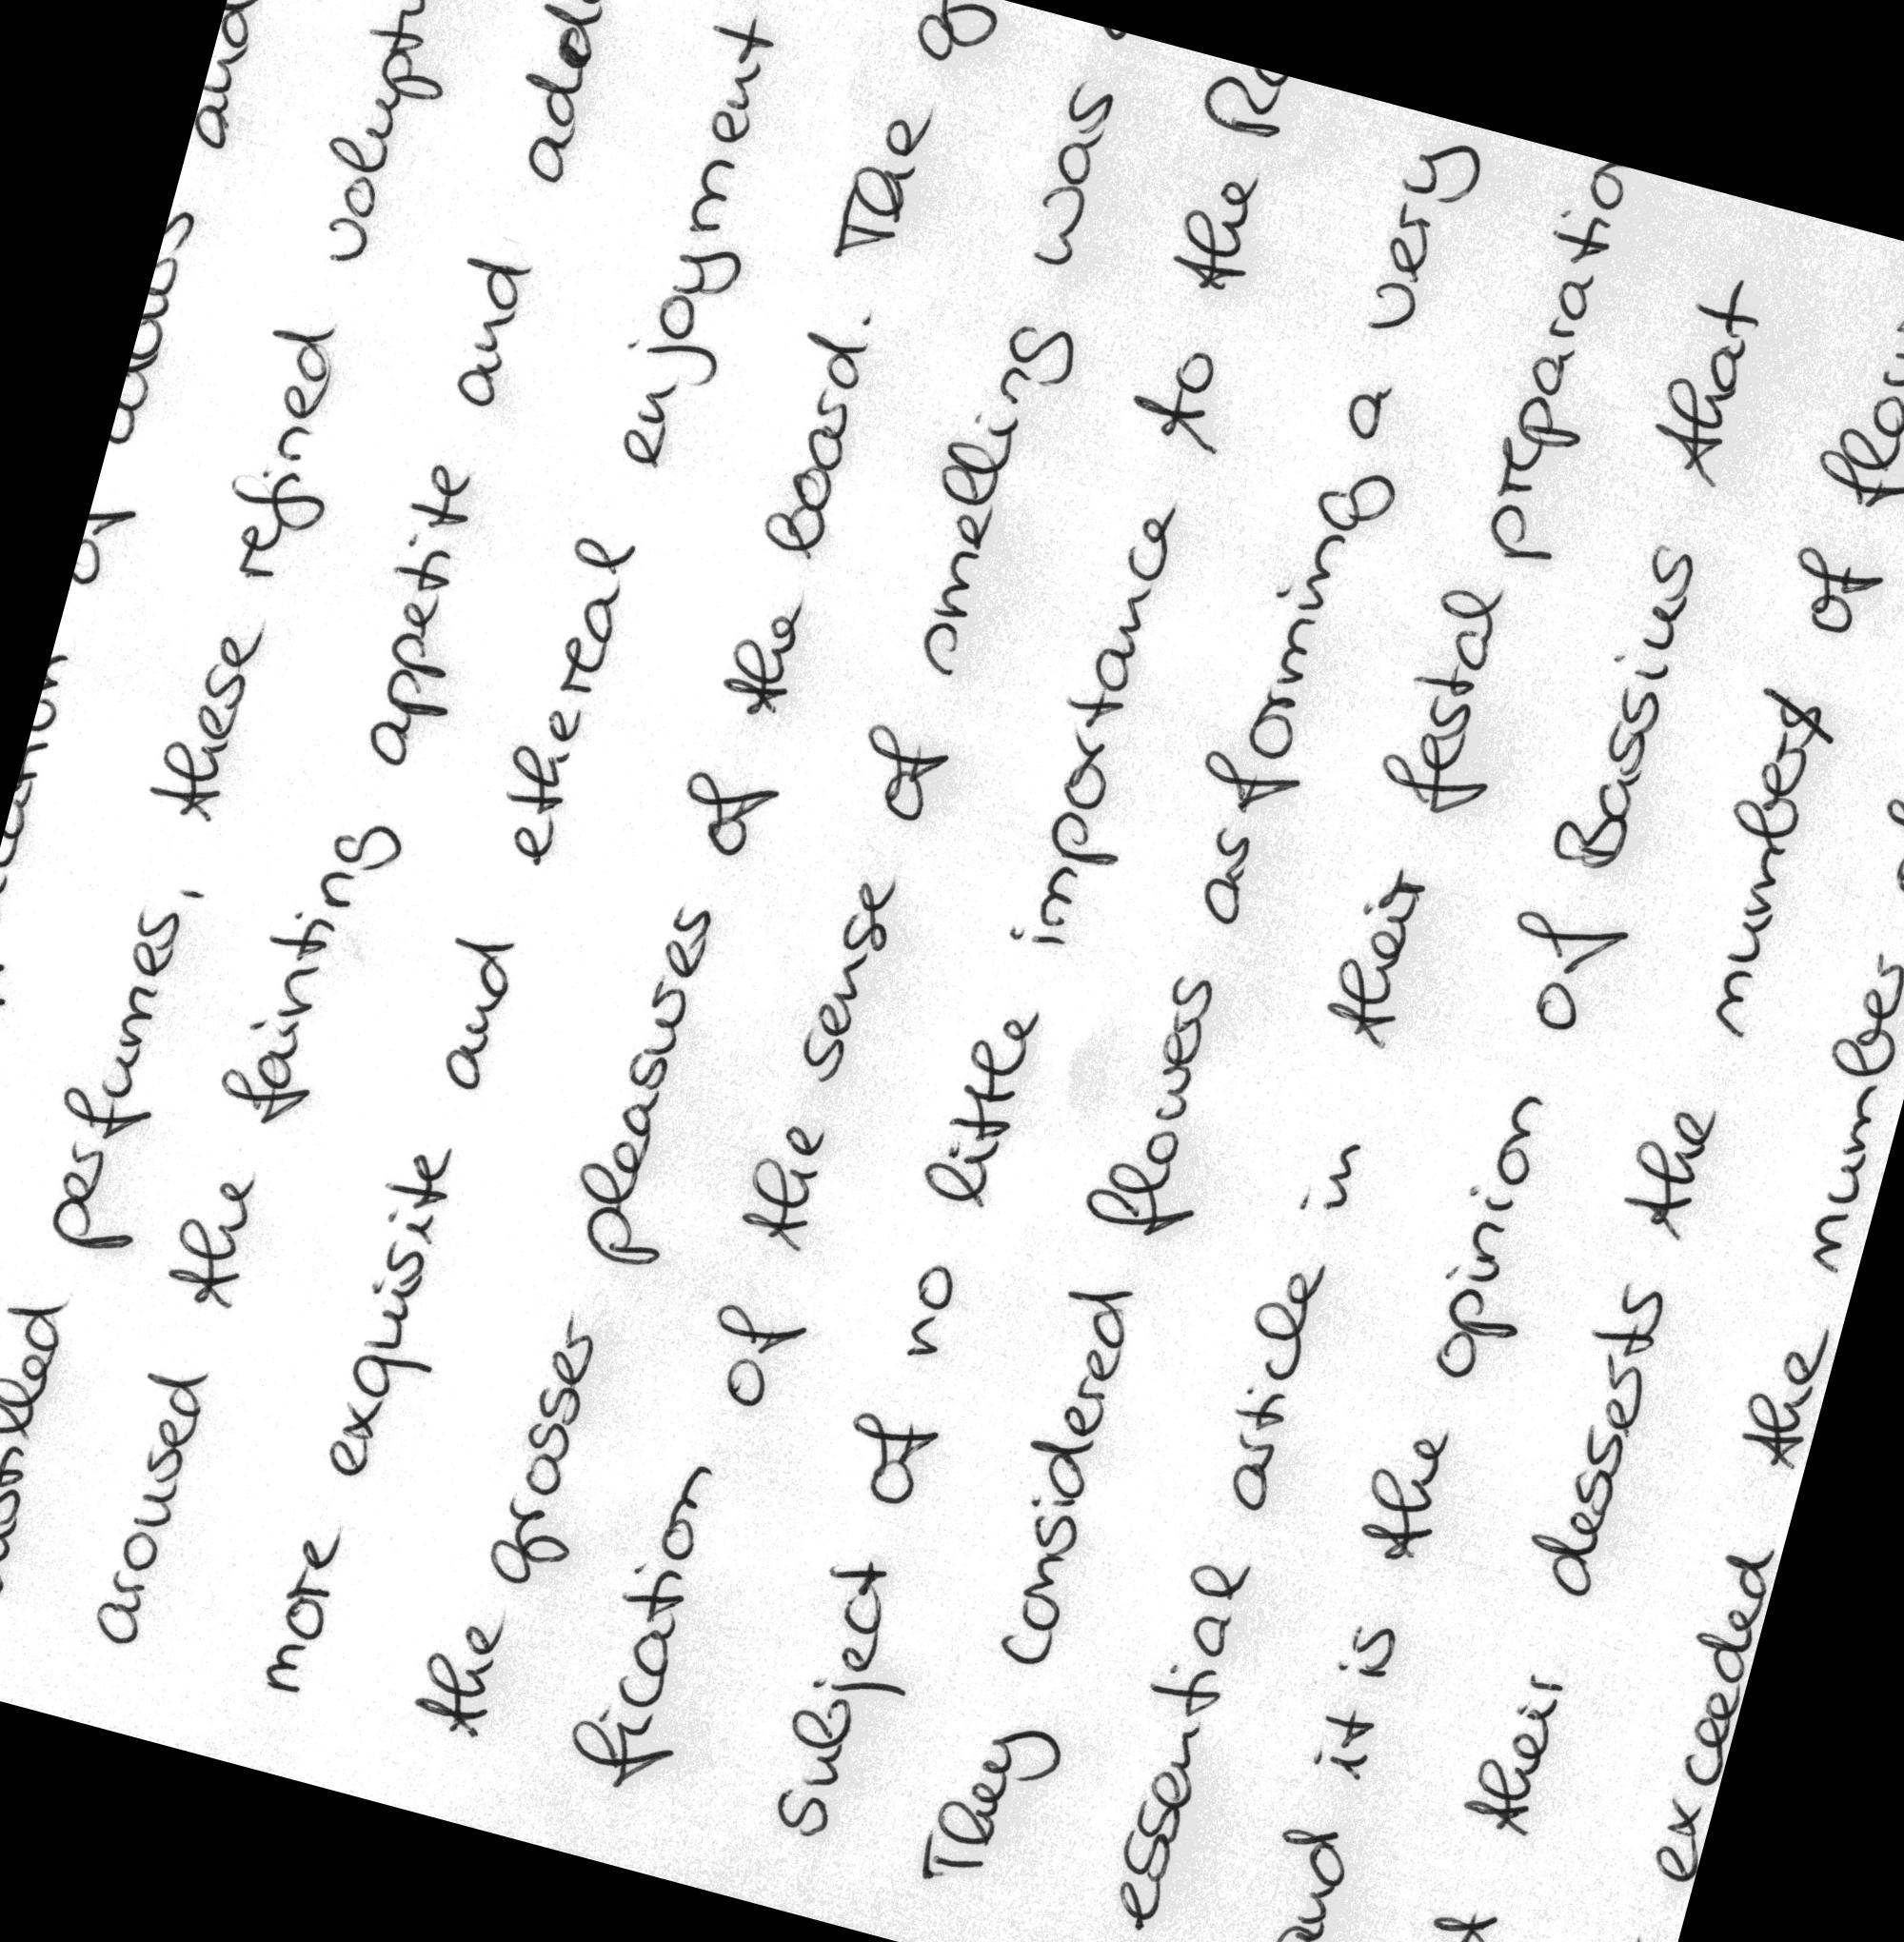 perfumes, these refined
aroused the fainting appetite and
more exquisite and ethereal enjoyment
the grosser pleasures of the board. The
fication of the sense of smelling was
subject of no little importance to the
They considered flowers as forming a very
essential article in their festal
and it is the opinion of Bassius that
their desserts the number of
exceeded the number